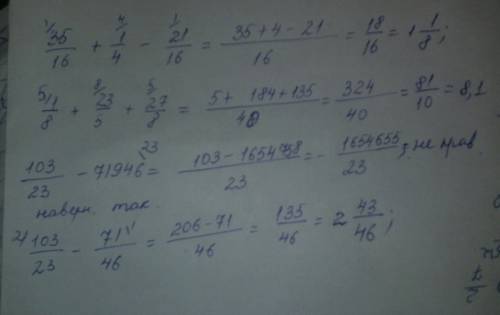 35/16 + 1/4 - 21/16 = (35+4-21)/16 = 18/16 = 1 1/8;
1/8 + 23/5 + 27/8 = (5+ 184+135)/40 = 324/40 = 81/10 = 8,1
103/23 - 71946 = (103-1654758)/23 = - 1654655/23; не прав.
наверн. так.
2) 103/23 - 71/46 = (206-71)/46 = 135/46 = 2 43/46;